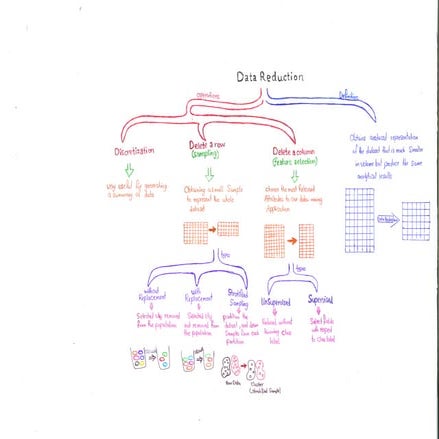 Data Reduction
operations
Definition
Discretization
Delete a row
(sampling)
Delete a column
(feature selection)
Obtains reduced representation
of the dataset that is much smaller
in volume but produce the same
analytical results
very useful for generating
a summary of data
Obtaining a small Sample
to represent the whole
dataset
choose the most Relevant
Attributes to our data mining
Application
Data Reduction
type
type
without
Replacement
with
Replacement
Stratified
Sampling
UnSupervised
Supervised
Selected obj removed
from the population
Selected obj
not removed from
the population
partition the
dataset, and draw
Samples from each
partition
Selected without
class
label
Select fields
with respect
to class label
Raw Data
Cluster
(Stratified Sample)